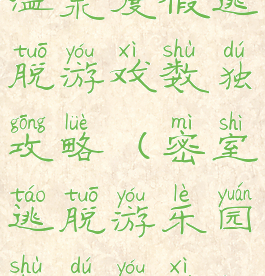 温泉度假逃
tuō yóu xì shù dú
脱游戏数独
gōng lüè mì shì
攻略（密室
táo tuō yóu lè yuán
逃脱游乐园
shù dú yóu xì